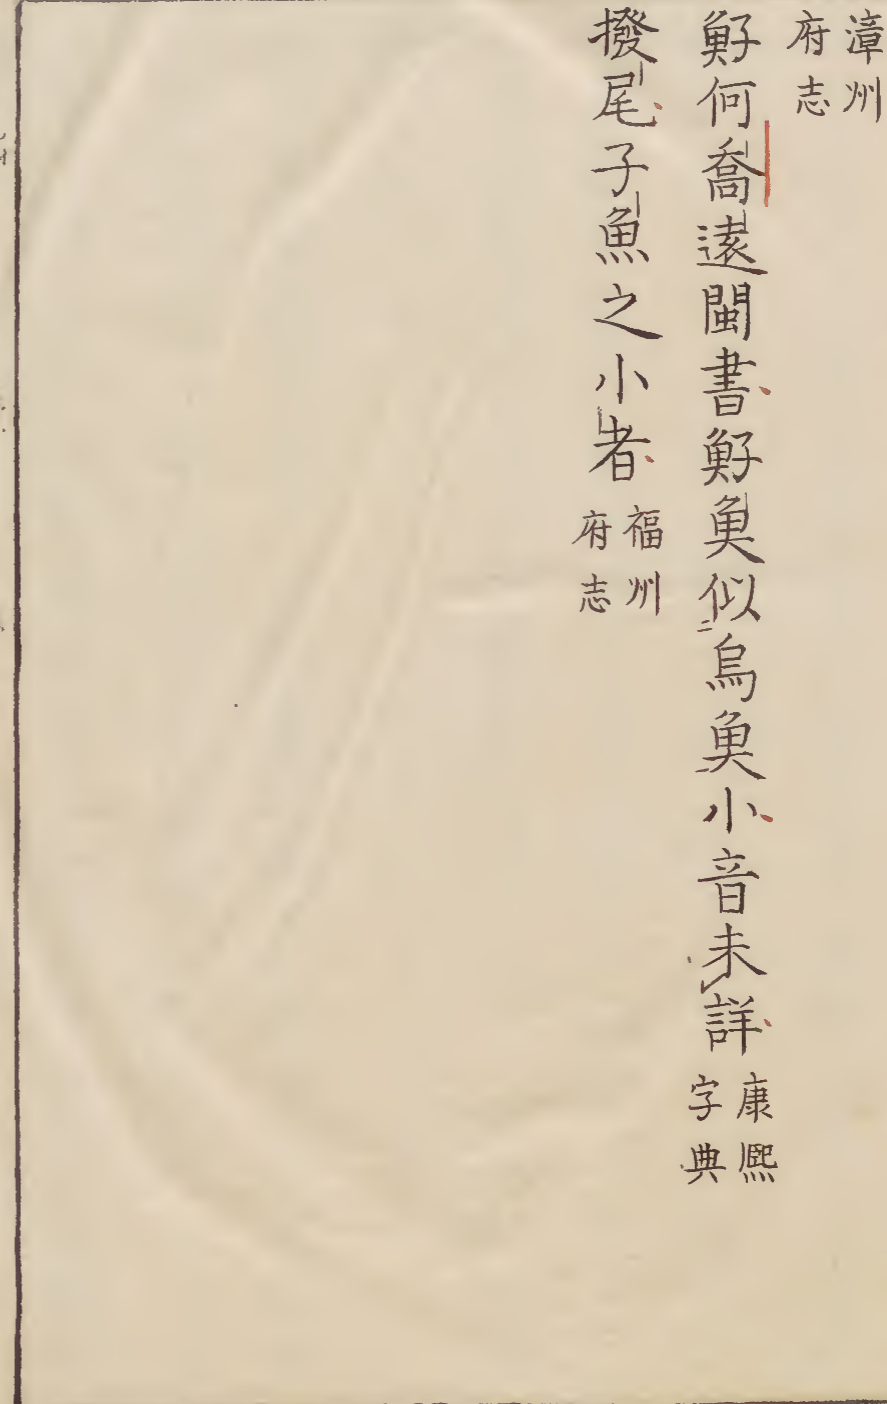 漳州府志
䰵何喬遠閩書䰵魚似烏魚小音未詳康熙字典
撥尾子魚之小者福州府志